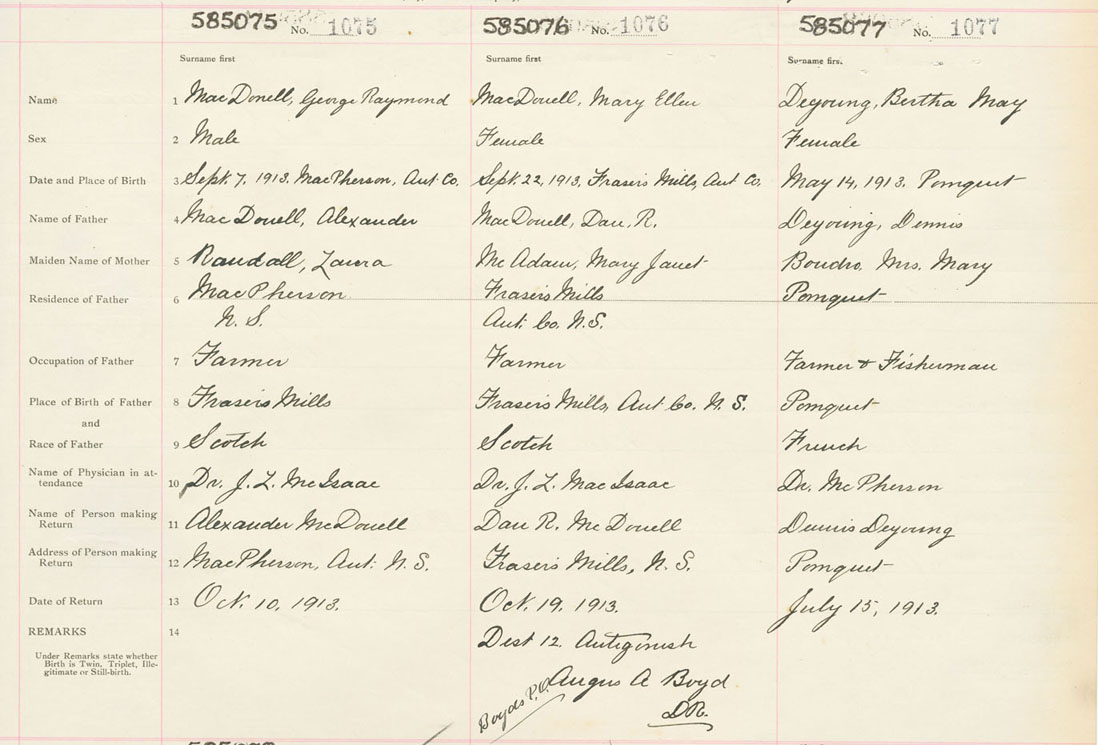 585075 No. 1075 585076 No. 1076 585077 No. 1077
Surname first Surname first Surname first
Name 1 MacDonell, George Raymond MacDonell, Mary Ellen Deyoung, Bertha May
Sex 2 Male Female Female
Date and Place of Birth 3 Sept. 7, 1913. MacPherson, Ant. Co. Sept. 22, 1913, Frasers Mills, Ant Co. May 14, 1913. Pomquet
Name of Father 4 MacDonell, Alexander MacDonell, Dan, R. Deyoung, Dennis
Maiden Name of Mother 5 Randall, Laura McAdam, Mary Janet Boudro, Mrs. Mary
Residence of Father 6 MacPherson Frasers Mills Pomquet
N. S. Ant. Co. N.S.
Occupation of Father 7 Farmer Farmer Farmer & Fisherman
Place of Birth of Father 8 Frasers Mills Frasers Mills, Ant. Co. N. S. Pomquet
and
Race of Father 9 Scotch Scotch French
Name of Physician in at-
tendance 10 Dr. J. L. McIsaac Dr. J. L. MacIsaac Dr. McPherson
Name of Person making
Return 11 Alexander McDonell Dan R. McDonell Dennis Deyoung
Address of Person making
Return 12 MacPherson, Ant. N. S. Frasers Mills, N. S. Pomquet
Date of Return 13 Oct. 10, 1913. Oct. 19, 1913. July 15, 1913.
REMARKS 14
Dist 12. Antigonish
Under Remarks state whether
Birth is Twin, Triplet, Ille-
gitimate or Still-birth.
Angus A Boyd
Boyds P.O. DR.